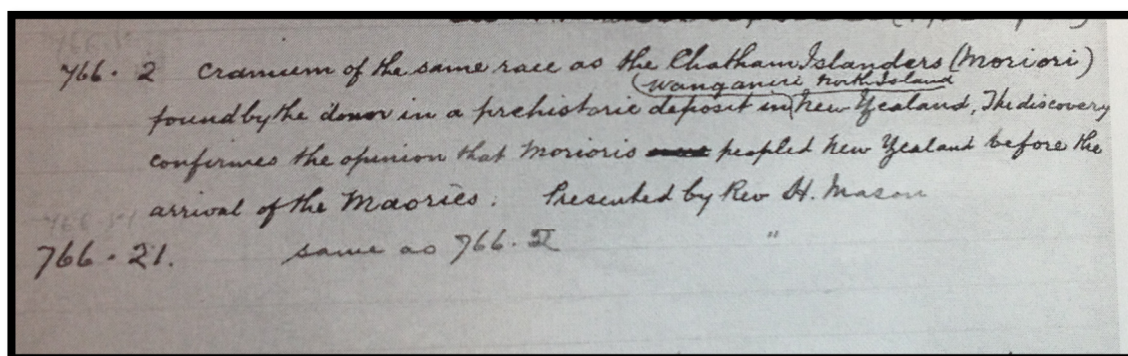 766. 2 Cranium of the same race as the Chatham Islanders (Moriori)
(Wanganui North Island
found by the donor in a prehistoric deposit in New Zealand, The discovery
confirmes the opinion that Morioris peopled New Zealand before the
arrival of the Maories. Presented by Rev H. Mason
766. 21. same as 766. 2 "